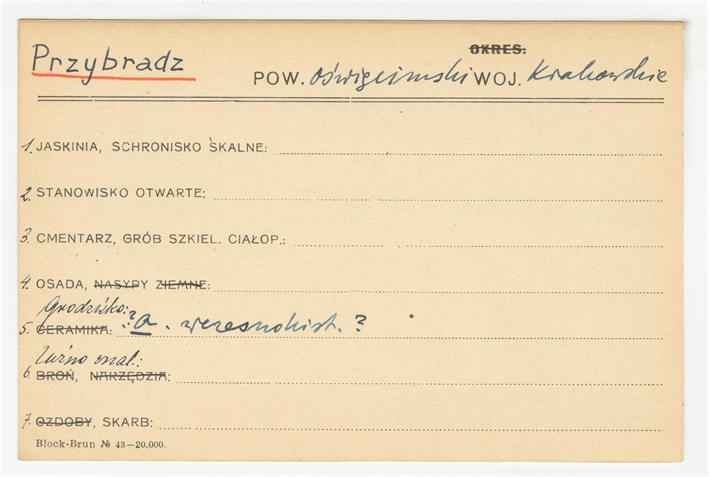 Przybradz
OKRES:
POW. Oświęcimski WOJ. Krakowskie
1. JASKINIA, SCHRONISKO SKALNE:
2. STANOWISKO OTWARTE:
3. CMENTARZ, GRÓB SZKIEL. CIAŁOP.:
4. OSADA, NASYPY ZIEMNE:
Grodzisko:
5. CERAMIKA: ? a. wczesnohist. ?
Luźno znal.:
6. BROŃ, NARZĘDZIA:
7. OZDOBY, SKARB:
Block-Brun № 43—20.000.